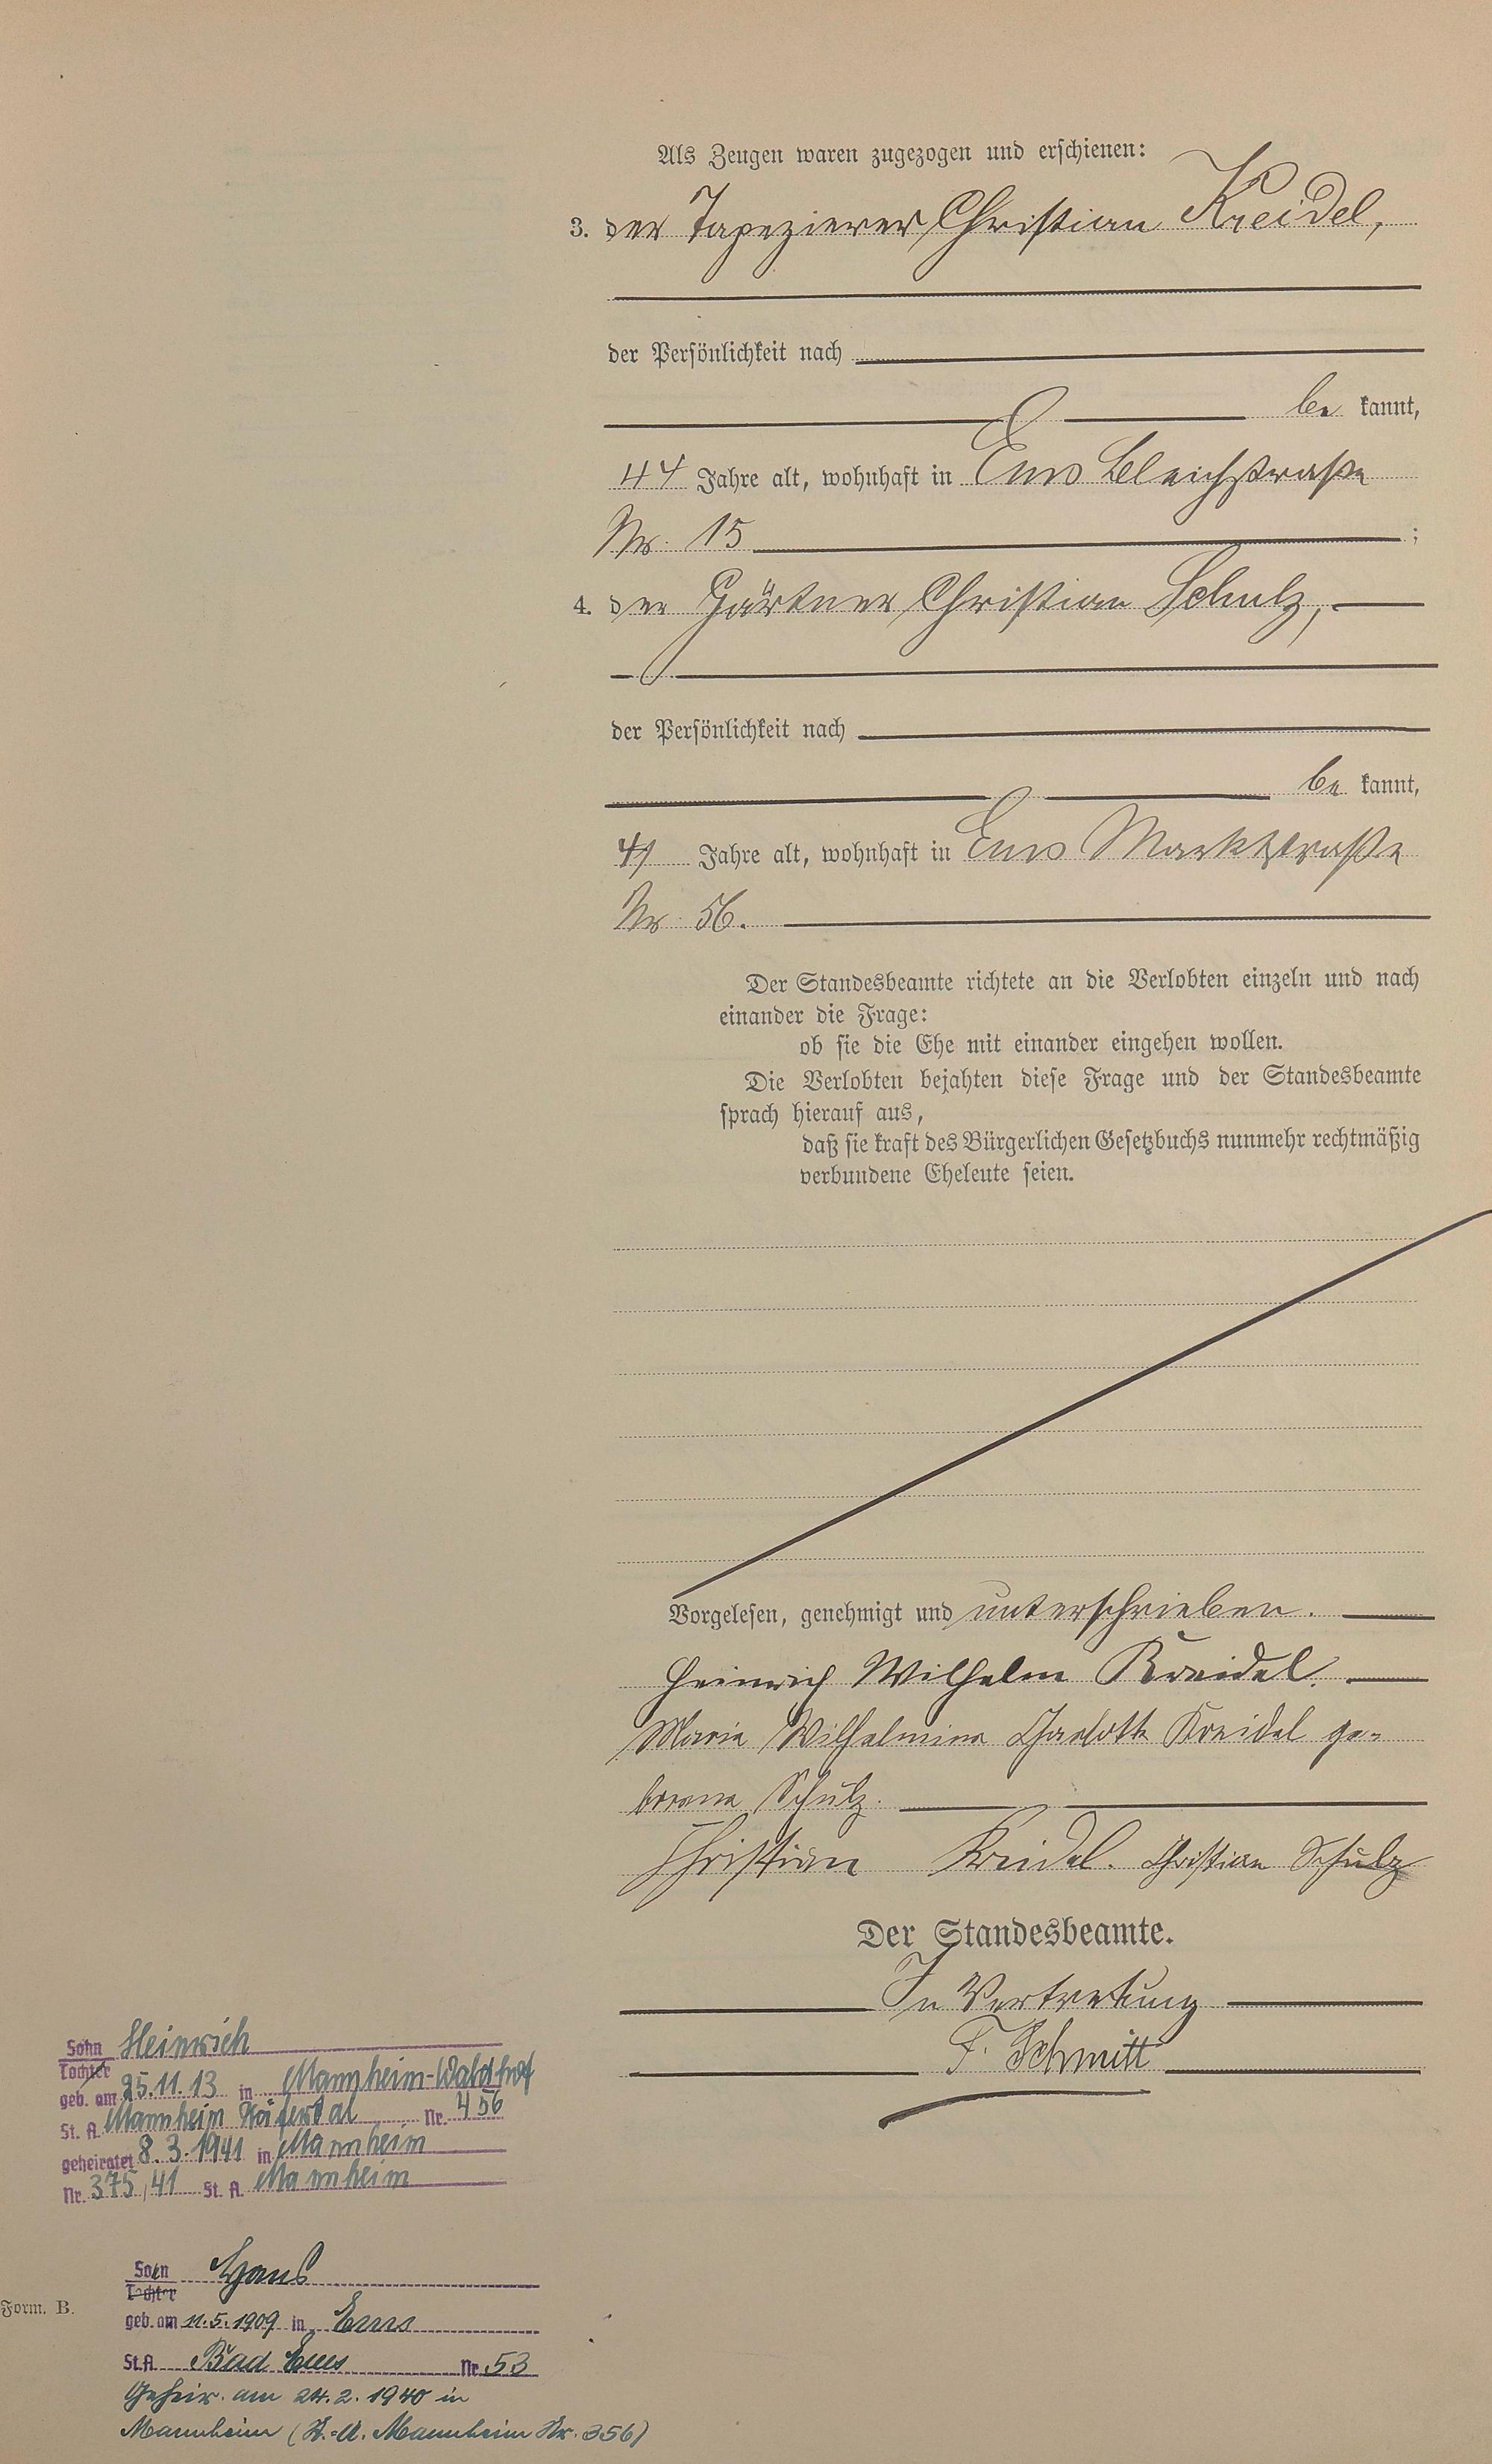 Als Zeugen waren zugezogen und erschienen:
3. der Tapezierer Christian Kreidel,
der Persönlichkeit nach
be kannt,
44 Jahre alt, wohnhaft in Ems Bleichstraße
Nr. 15 ;
4. der Gärtner Christian Schulz,
der Persönlichkeit nach
be kannt,
41 Jahre alt, wohnhaft in Ems Marktstraße
Nr. 56.
Der Standesbeamte richtete an die Verlobten einzeln und nach
einander die Frage:
ob sie die Ehe mit einander eingehen wollen.
Die Verlobten bejahten diese Frage und der Standesbeamte
sprach hierauf aus,
daß sie kraft des Bürgerlichen Gesetzbuchs nunmehr rechtmäßig
verbundene Eheleute seien.
Vorgelesen, genehmigt und unterschrieben.
Heinrich Wilhelm Kreidel.
Maria Wilhelmine Charlotte Kreidel ge-
borene Schulz.
Christian Kreidel. Christian Schulz
Der Standesbeamte.
In Vertretung
F. Schmitt
Sohn Heinrich
Tochter
geb. am 25.11.13 in Mannheim-Waldhof
St. A. Mannheim Käfertal Nr. 456
geheiratet 8.3.1941 in Mannheim
Nr. 375/41 St. A. Mannheim
Sohn Hans
Tochter
geb. am 11.5.1909 in Ems
St.A. Bad Ems Nr. 53
Geheir. am 24.2.1940 in
Mannheim (St.-A. Mannheim Nr. 356)
Form. B.